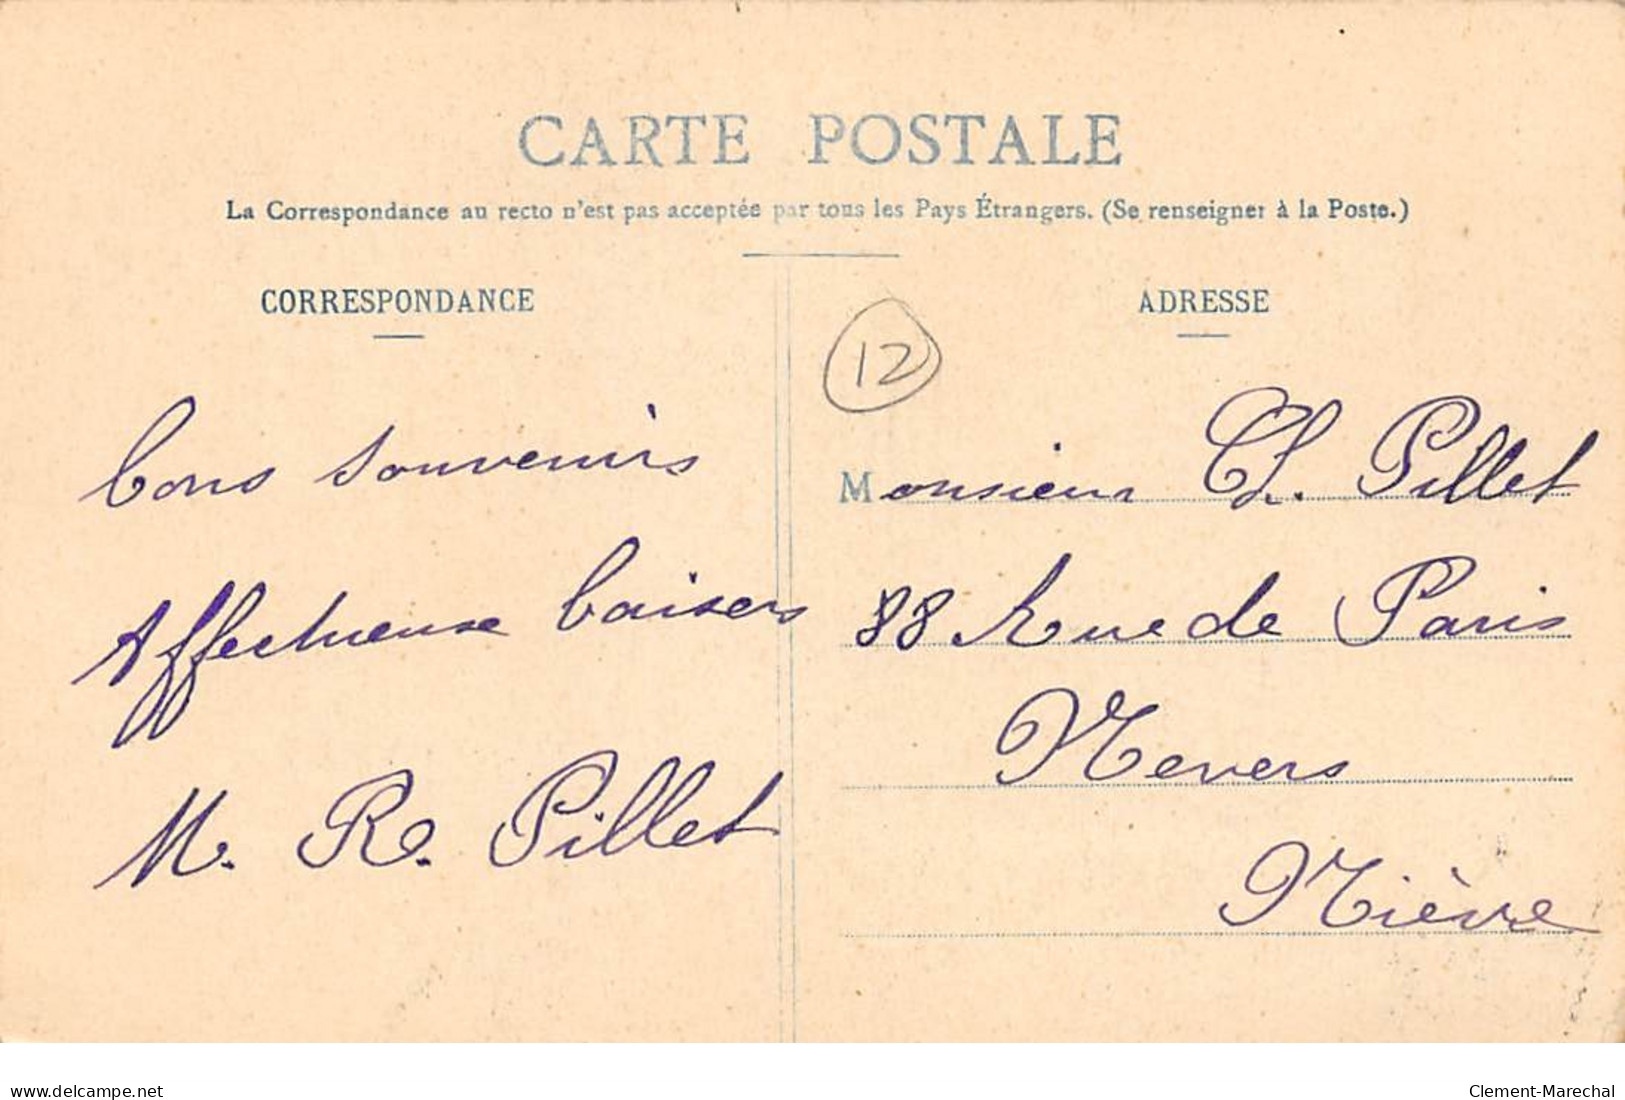 CARTE POSTALE
La Correspondance au recto n'est pas acceptée par tous les Pays Étrangers. (Se renseigner à la Poste.)
CORRESPONDANCE
bons souvenirs
Affectueuse baisers
M. R. Pillet
12
ADRESSE
Monsieur Ch. Pillet
88 Rue de Paris
Nevers
Nièvre
delcampe.net
Clement-Marechal